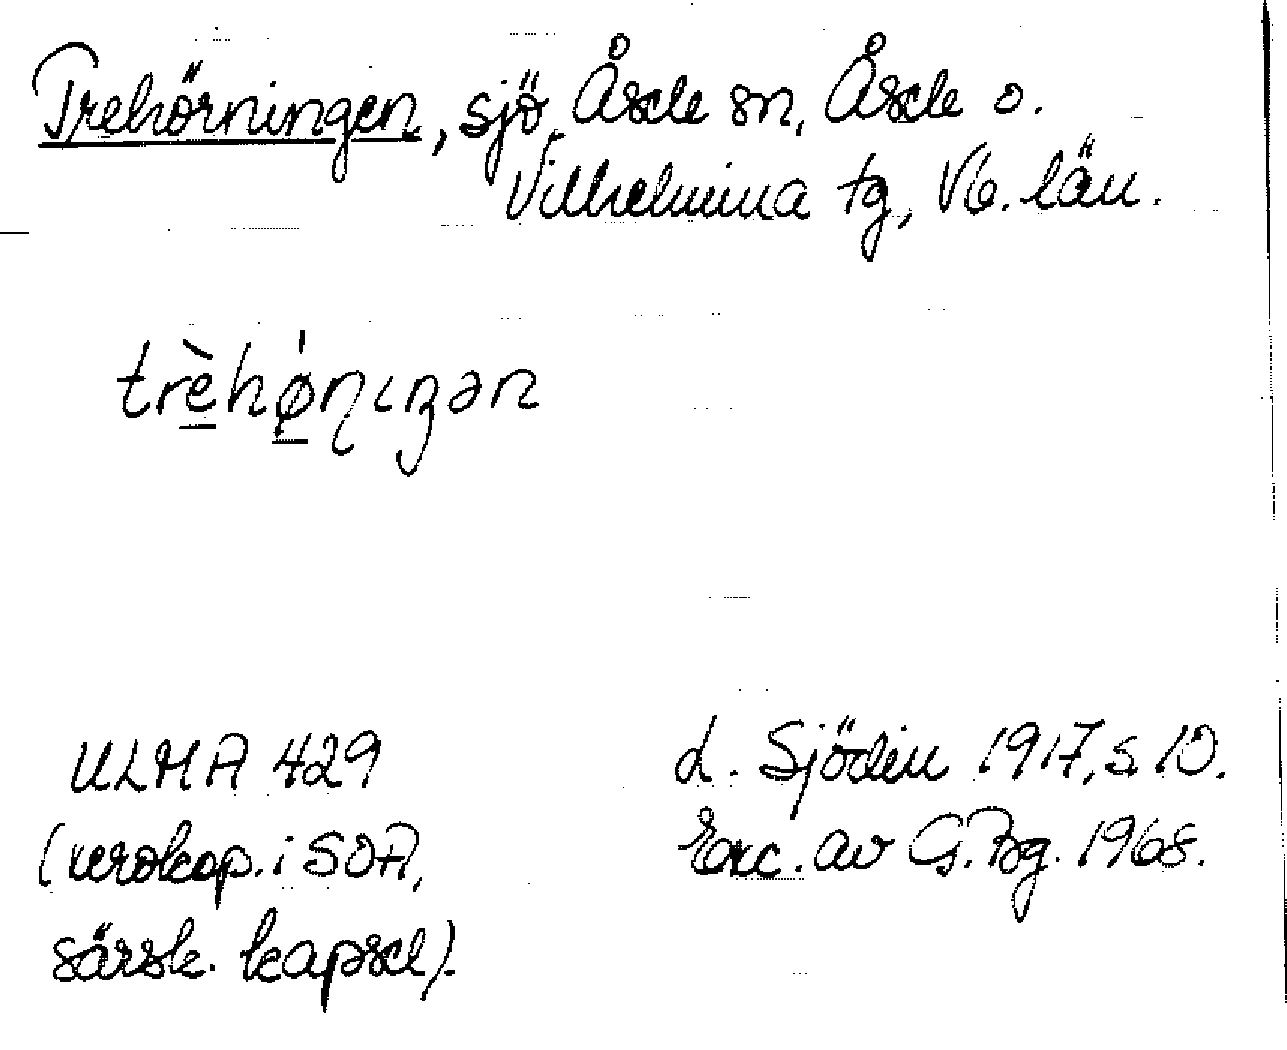 Trehörningen, sjö, Åsele sn, Åsele o.
Vilhelmina tg, Vb. län.
trèhǿɳɩŋən
ULMA 429
(xerokop. i SOA,
särsk. kapsel).
L. Sjödin 1917, s. 10.
Exc. av G. Bg. 1968.